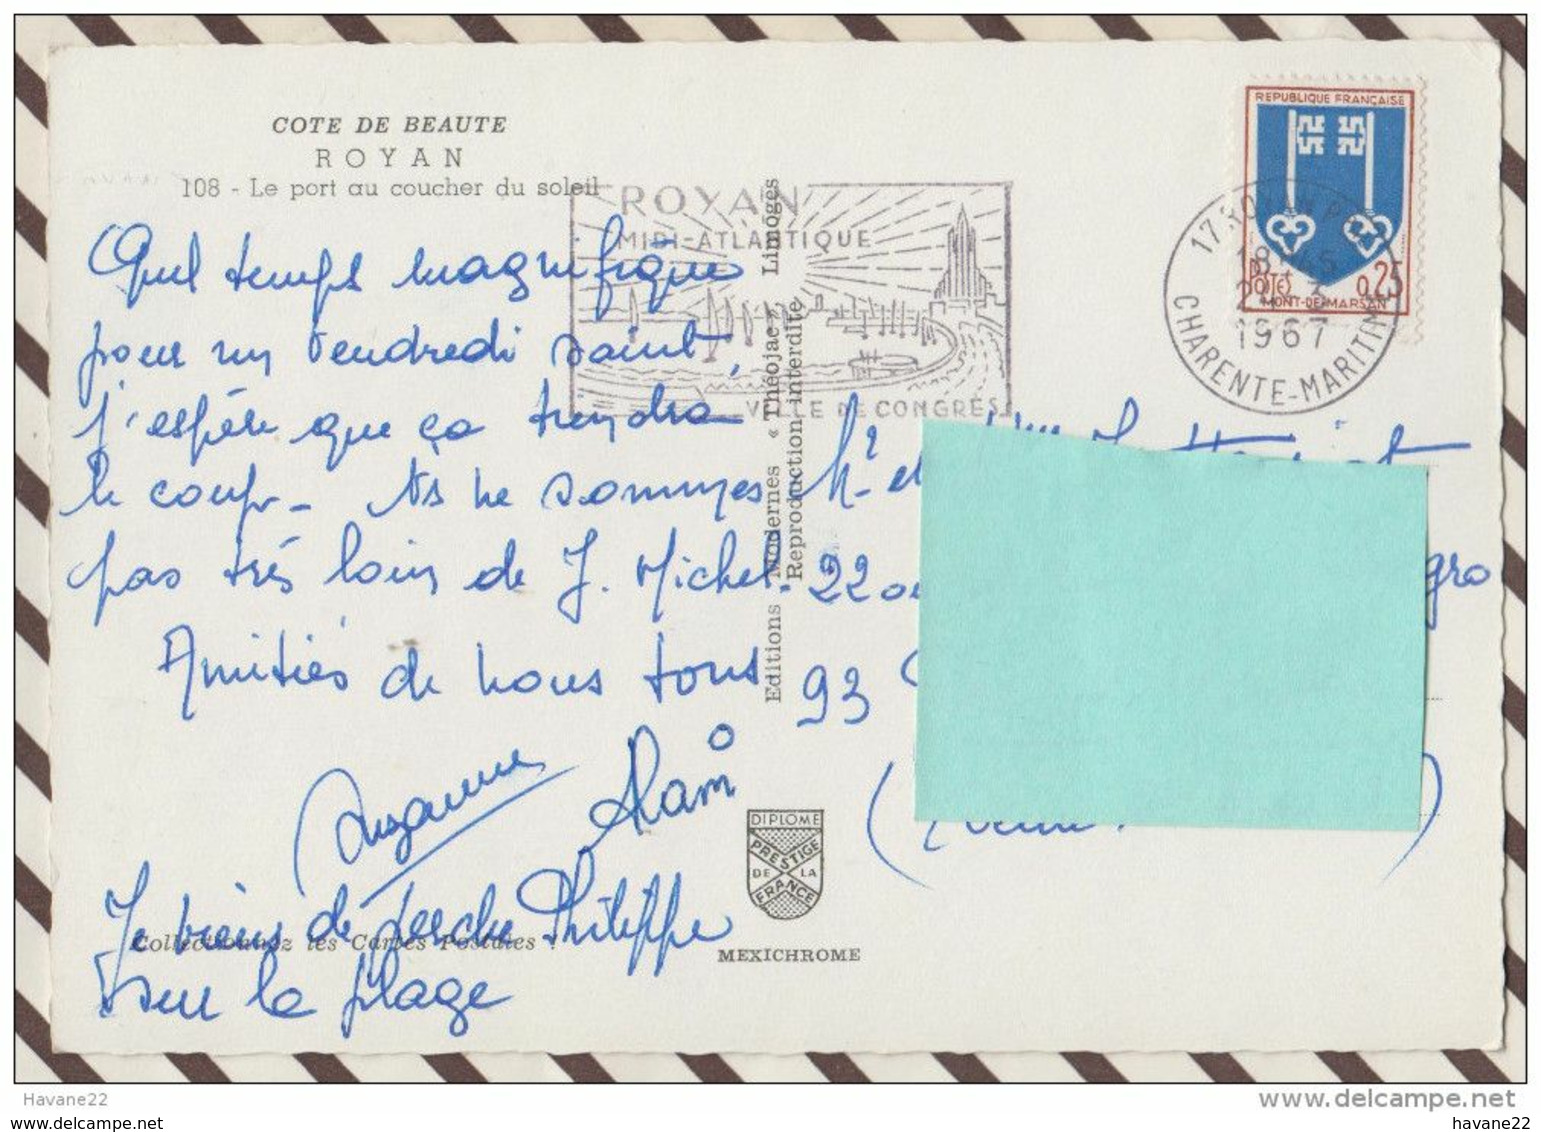 COTE DE BEAUTE
ROYAN
108 - Le port au coucher du soleil
Quel temps magnifique
pour un Vendredi saint,
j'espère que ça tiendra
le coup - Ns ne sommes
pas très loin de J. Michel.
Amitiés de nous tous
Suzanne
Alain
Je viens de perdre Philippe
sur la plage
Collectionnez les Cartes Postales !
ROYAN
MIDI-ATLANTIQUE
VILLE DE CONGRÈS
Editions Modernes « Théojac » Limoges
Reproduction interdite
REPUBLIQUE FRANÇAISE
POSTES
0,25
MONT-DE-MARSAN
17 ROYAN
1967
CHARENTE-MARITIME
Mr et
22
gro
93
DIPLOME
PRESTIGE
DE LA
FRANCE
MEXICHROME
Havane22
www.delcampe.net
havane22